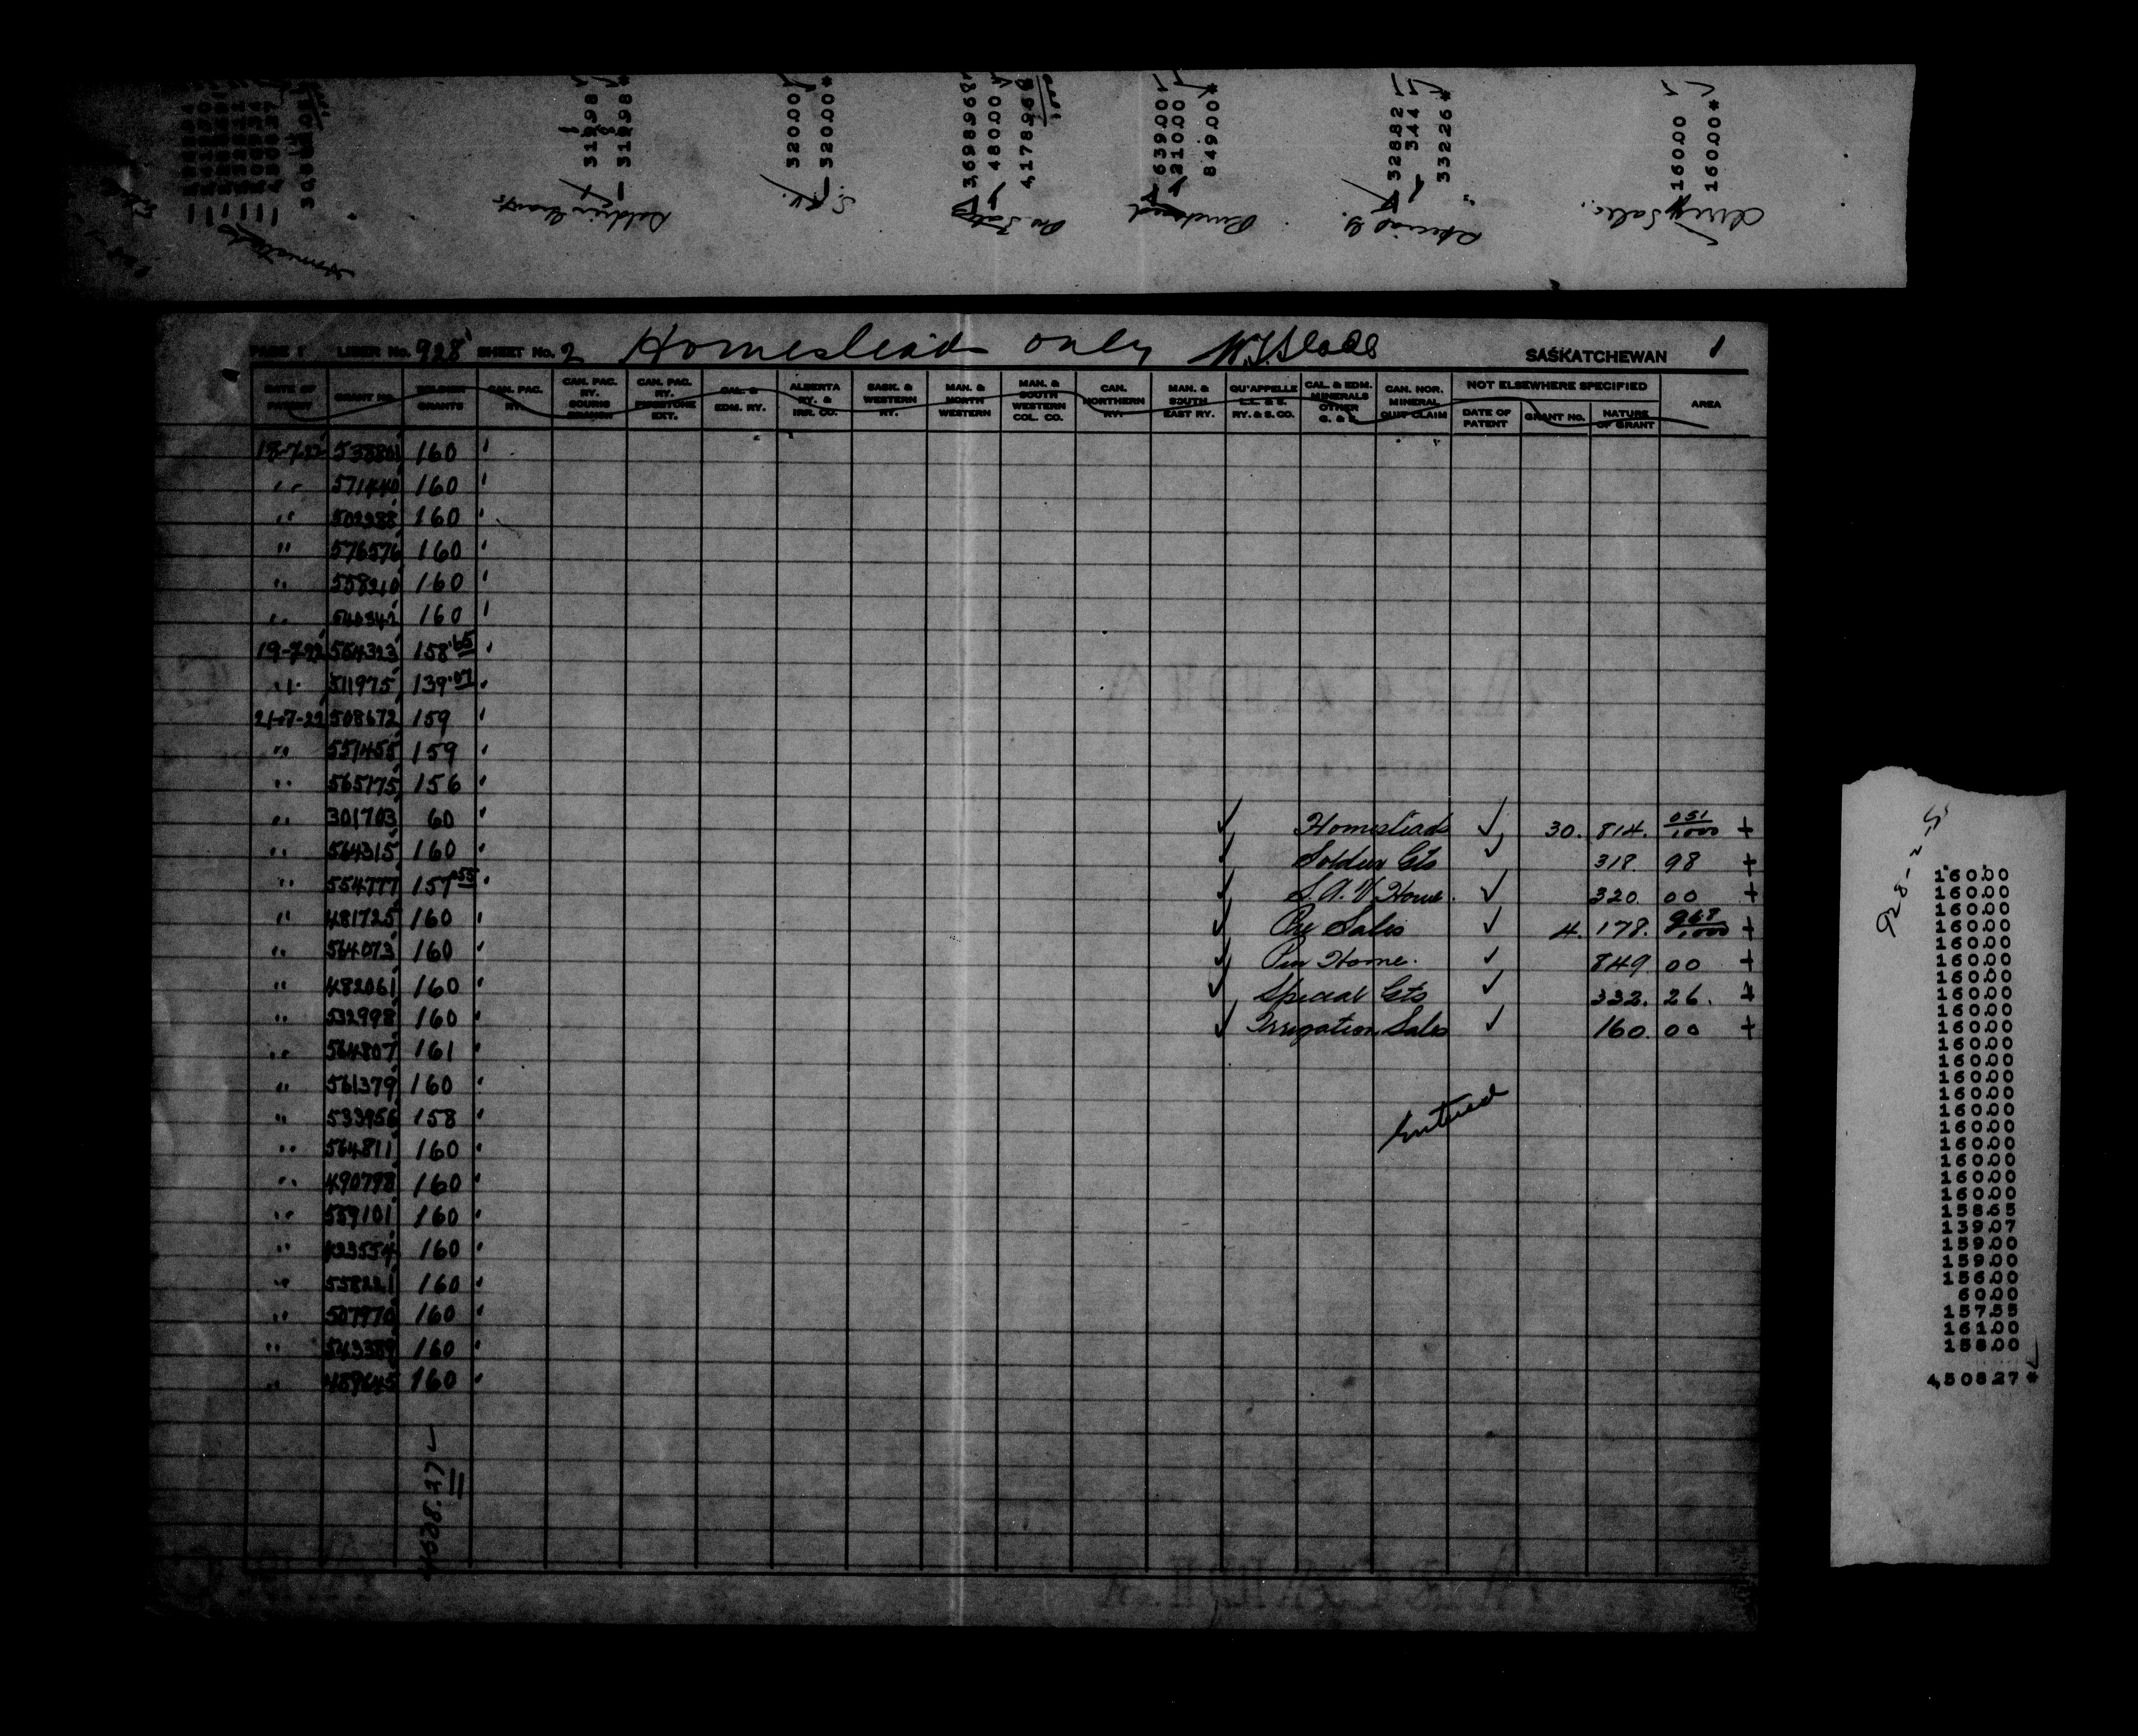 318.98
318.98*
320.00
320.00*
3,698.968
480.00
4,178.968
639.00
210.00
849.00*
328.82
3.44
332.26*
160.00
160.00*
Homesteads
Soldier Grants
Pre Sales
Purchased
Special G.
Irrig Sales.
PAGE 1 LIBER No. 928 SHEET No. 2 Homesteads only
SASKATCHEWAN 1
DATE OF PATENT
GRANT No.
SOLDIER GRANTS
CAN. PAC. RY.
CAN. PAC. RY. SOURIS BRANCH
CAN. PAC. RY. PIPESTONE EXT.
CAL. & EDM. RY.
ALBERTA RY. & IRR. CO.
SASK. & WESTERN RY.
MAN. & NORTH WESTERN
MAN. & SOUTH WESTERN COL. CO.
CAN. NORTHERN RY.
MAN. & SOUTH EAST RY.
QU'APPELLE L.L. & S. RY. & S. CO.
CAL. & EDM. MINERALS OTHER G. & S.
CAN. NOR. MINERAL QUIT CLAIM
NOT ELSEWHERE SPECIFIED
DATE OF PATENT
GRANT No.
NATURE OF GRANT
AREA
18-7-22 538801 160
" 571440 160
" 502388 160
" 576576 160
" 558210 160
" 160
19-7-22 554323 158.65
" 511975 139.07
21-7-22 508672 159
" 551455 159
" 565175 156
" 301703 60 Homesteads 30. 814. 051/1000 +
" 564315 160 Soldier Gts 318. 98 +
" 554777 157.55 S.A.V Home. 320. 00 +
" 481725 160 Pre Sales 4. 178. 968/1000 +
" 564073 160 Pur Home. 849 00 +
" 482061 160 Special Gts 332. 26. +
" 532998 160 Irrigation Sales 160. 00 +
" 564807 161
" 561379 160
" 533956 158 Entered
" 564811 160
" 490798 160
" 559101 160
" 160
" 558221 160
" 507970 160
" 543389 160
" 489645 160
4508.27
928-2-S
160.00
160.00
160.00
160.00
160.00
160.00
160.00
160.00
160.00
160.00
160.00
160.00
160.00
160.00
160.00
160.00
160.00
160.00
160.00
160.00
158.65
139.07
159.00
159.00
156.00
60.00
157.55
161.00
158.00
4,508.27*